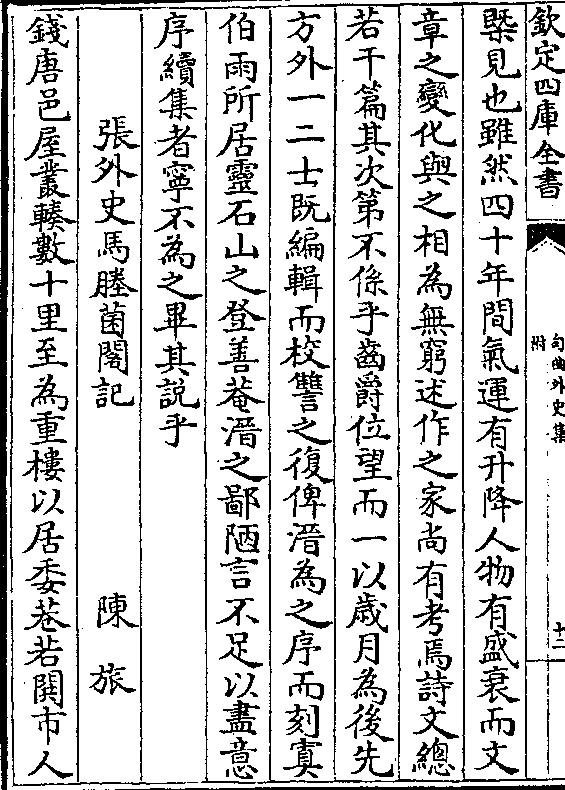 欽定四庫全書
句曲外史集
附
十二
槩見也雖然四十年間氣運有升降人物有盛衰而文
章之變化與之相為無窮述作之家尚有考焉詩文總
若干篇其次第不係乎齒爵位望而一以歲月為後先
方外一二士既編輯而校讐之復俾溍為之序而刻寘
伯雨所居靈石山之登善菴溍之鄙陋言不足以盡意
序續集者寧不為之畢其說乎
張外史馬塍菌閣記 陳旅
錢唐邑屋叢轃數十里至為重樓以居委巷若閧市人